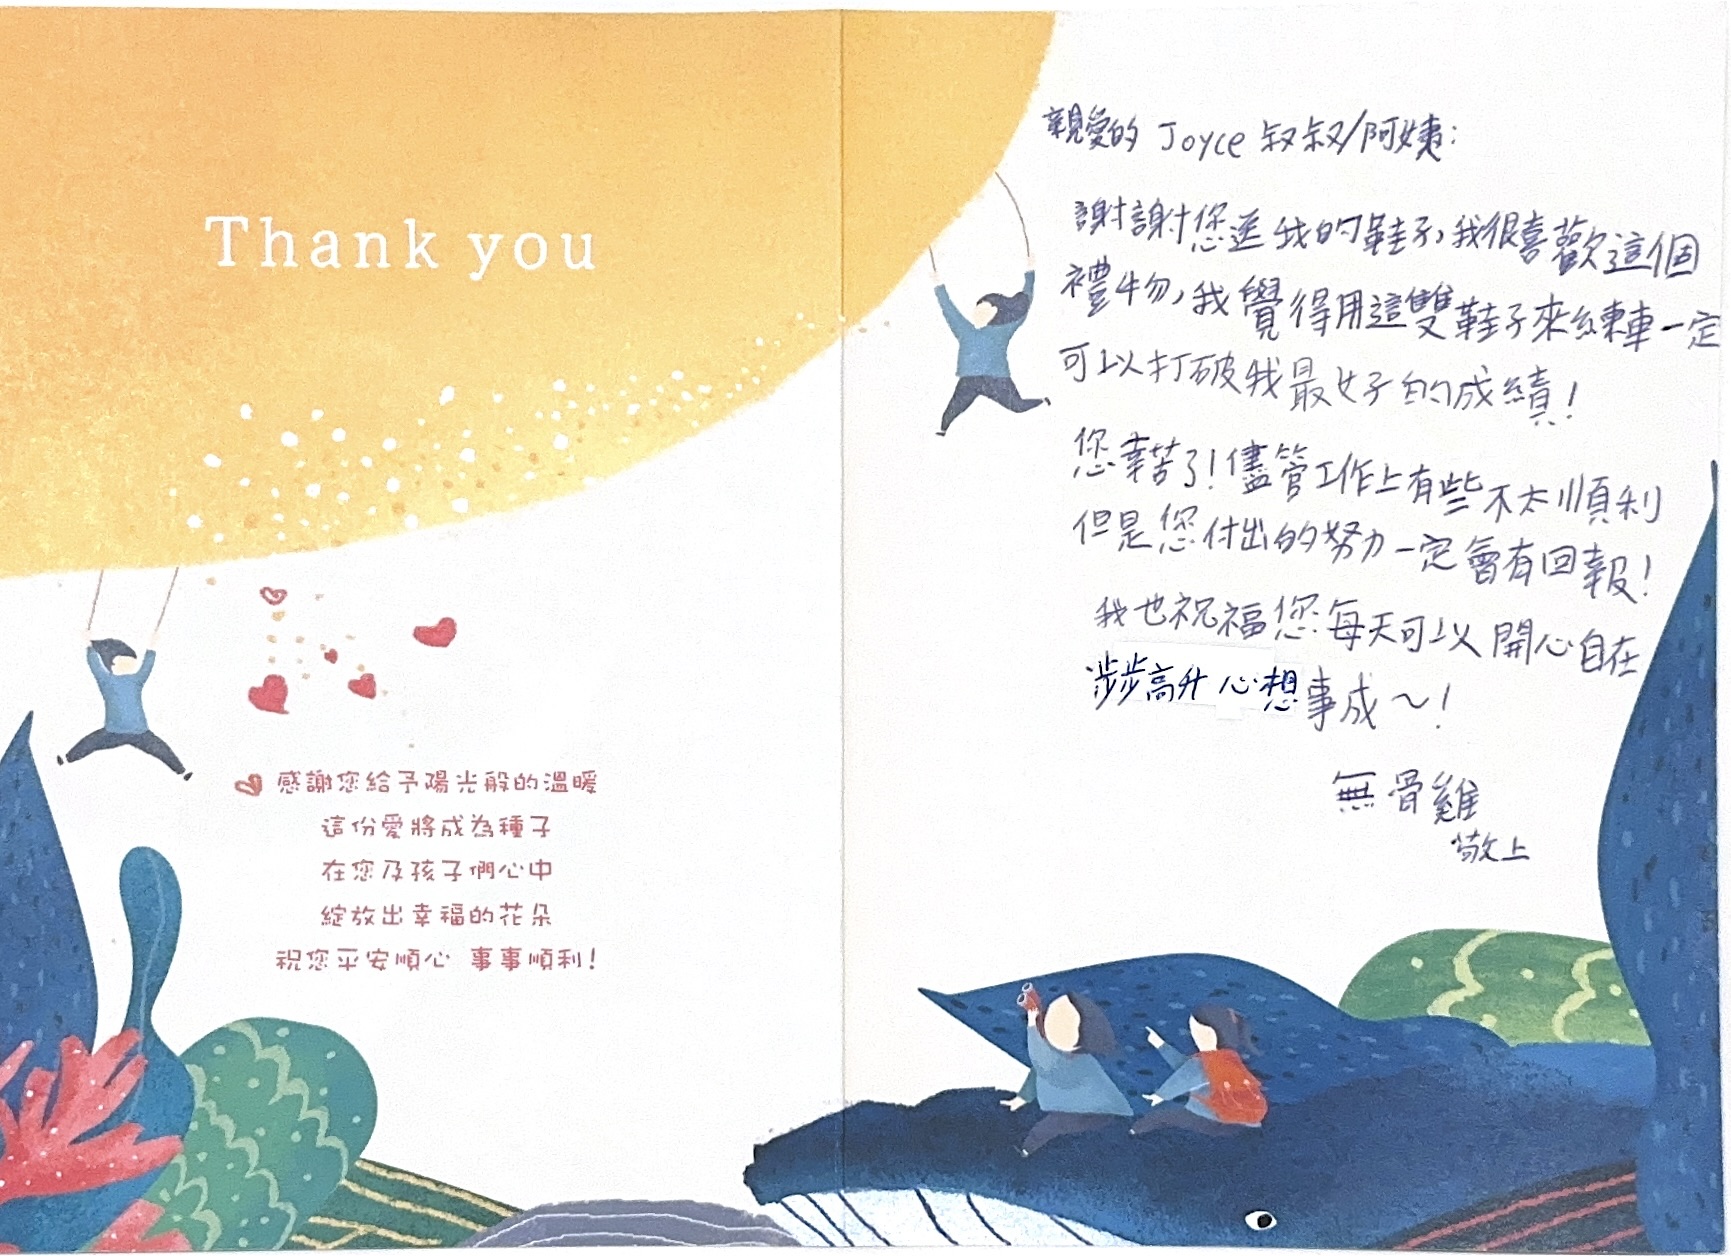 Thank you
感謝您給予陽光般的溫暖
這份愛將成為種子
在您及孩子們心中
綻放出幸福的花朵
祝您平安順心 事事順利!
親愛的 Joyce 叔叔/阿姨:
謝謝您送我的鞋子,我很喜歡這個
禮物,我覺得用這雙鞋子來練車一定
可以打破我最好的成績!
您辛苦了!儘管工作上有些不太順利
但是您付出的努力一定會有回報!
我也祝福您每天可以開心自在
步步高升 心想事成~!
無骨雞
敬上